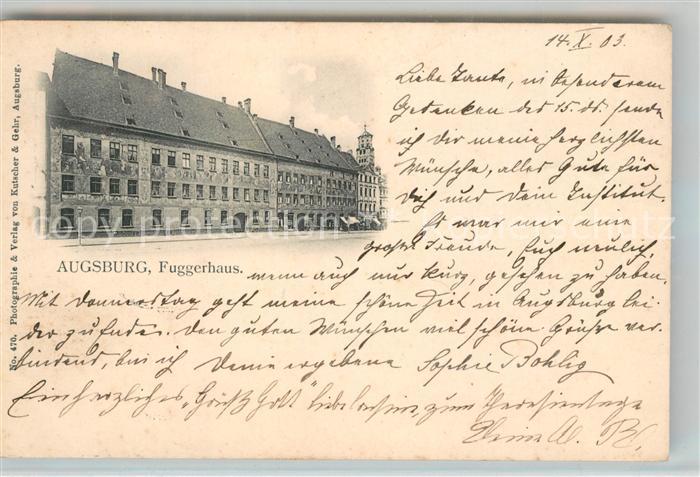 14. X. 03.
Liebe Tante, in besonderem
Gedenken des 15. ds. sende
ich dir meine herzlichsten
Wünsche, alles Gute für
Dich und Dein Institut.
Es war mir eine
große Freude, Euch neulich,
wenn auch nur kurz, gesehen zu haben.
Mit Donnerstag geht meine schöne Zeit in Augsburg lei-
der zu Ende. Den guten Wünschen viel schöne Grüße ver-
bindend, bin ich Deine ergebene Sophie Bohlig
Ein herzliches „Grüß Gott" zum Theresientage
Deine
AUGSBURG, Fuggerhaus.
No. 470. Photographie & Verlag von Kutscher & Gehr, Augsburg.
copyright protection